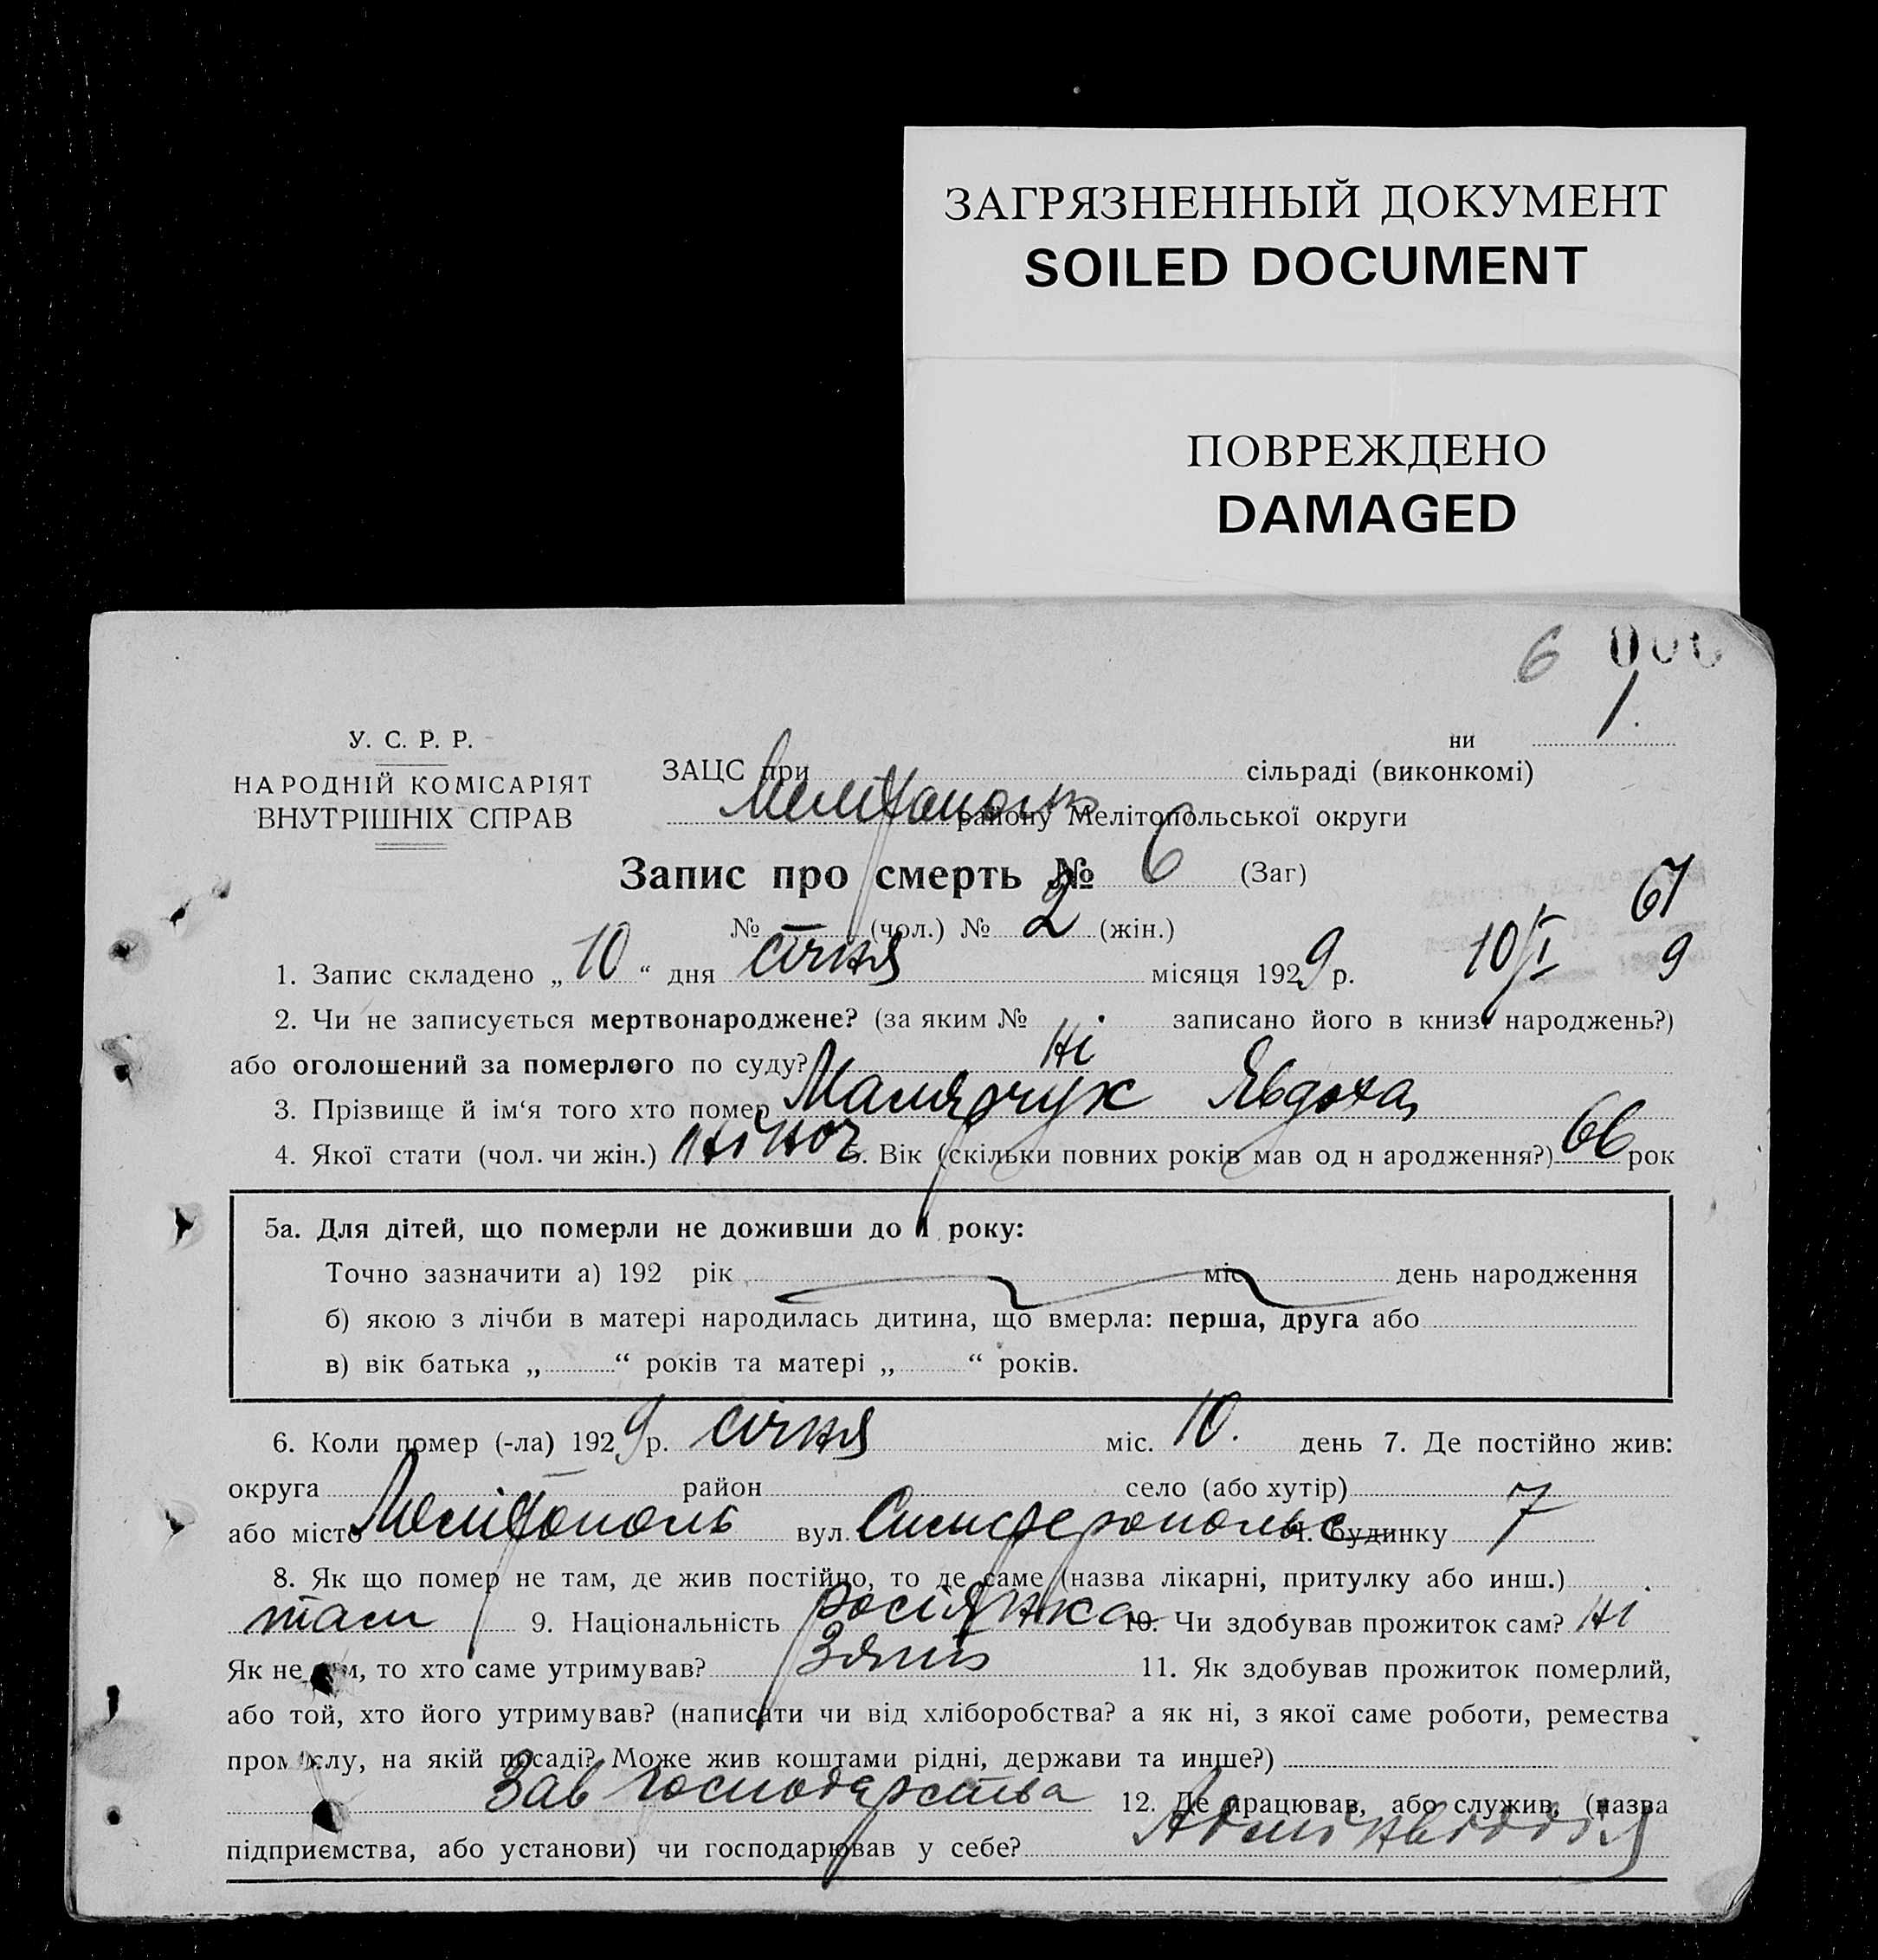 ЗАГРЯЗНЕННЫЙ ДОКУМЕНТ
SOILED DOCUMENT
ПОВРЕЖДЕНО
DAMAGED
6 000
1.
У. С. Р. Р.
НАРОДНІЙ КОМІСАРІЯТ
ВНУТРІШНІХ СПРАВ
ни
ЗАЦС при сільраді (виконкомі)
Мелітопольськ району Мелітопольської округи
Запис про смерть № 6 (Заг)
67
№ — (чол.) № 2 (жін.)
1. Запис складено „10“ дня січня місяця 1929 р. 10/I 9
2. Чи не записується мертвонароджене? (за яким № записано його в книзі народжень?)
або оголошений за померлого по суду? ні
3. Прізвище й ім‘я того хто помер Малярчук Явдоха
4. Якої стати (чол. чи жін.) жіноч 5. Вік (скільки повних років мав од н ародження?) 66 рок
5а. Для дітей, що померли не доживши до 1 року:
Точно зазначити а) 192 рік міс день народження
б) якою з лічби в матері народилась дитина, що вмерла: перша, друга або
в) вік батька „ “ років та матері „ “ років.
6. Коли помер (-ла) 1929 р. січня міс. 10. день 7. Де постійно жив:
округа район село (або хутір)
або місто Мелітополь вул. Симферопольс ч. будинку 7
8. Як що помер не там, де жив постійно, то де саме (назва лікарні, притулку або инш.)
там 9. Національність росіянка 10. Чи здобував прожиток сам? ні
Як не сам, то хто саме утримував? Зять 11. Як здобував прожиток померлий,
або той, хто його утримував? (написати чи від хліборобства? а як ні, з якої саме роботи, ремества
промислу, на якій посаді? Може жив коштами рідні, держави та инше?)
Зав господарства 12. Де працював, або служив, (назва
підприємства, або установи) чи господарював у себе? Адмінвідділ